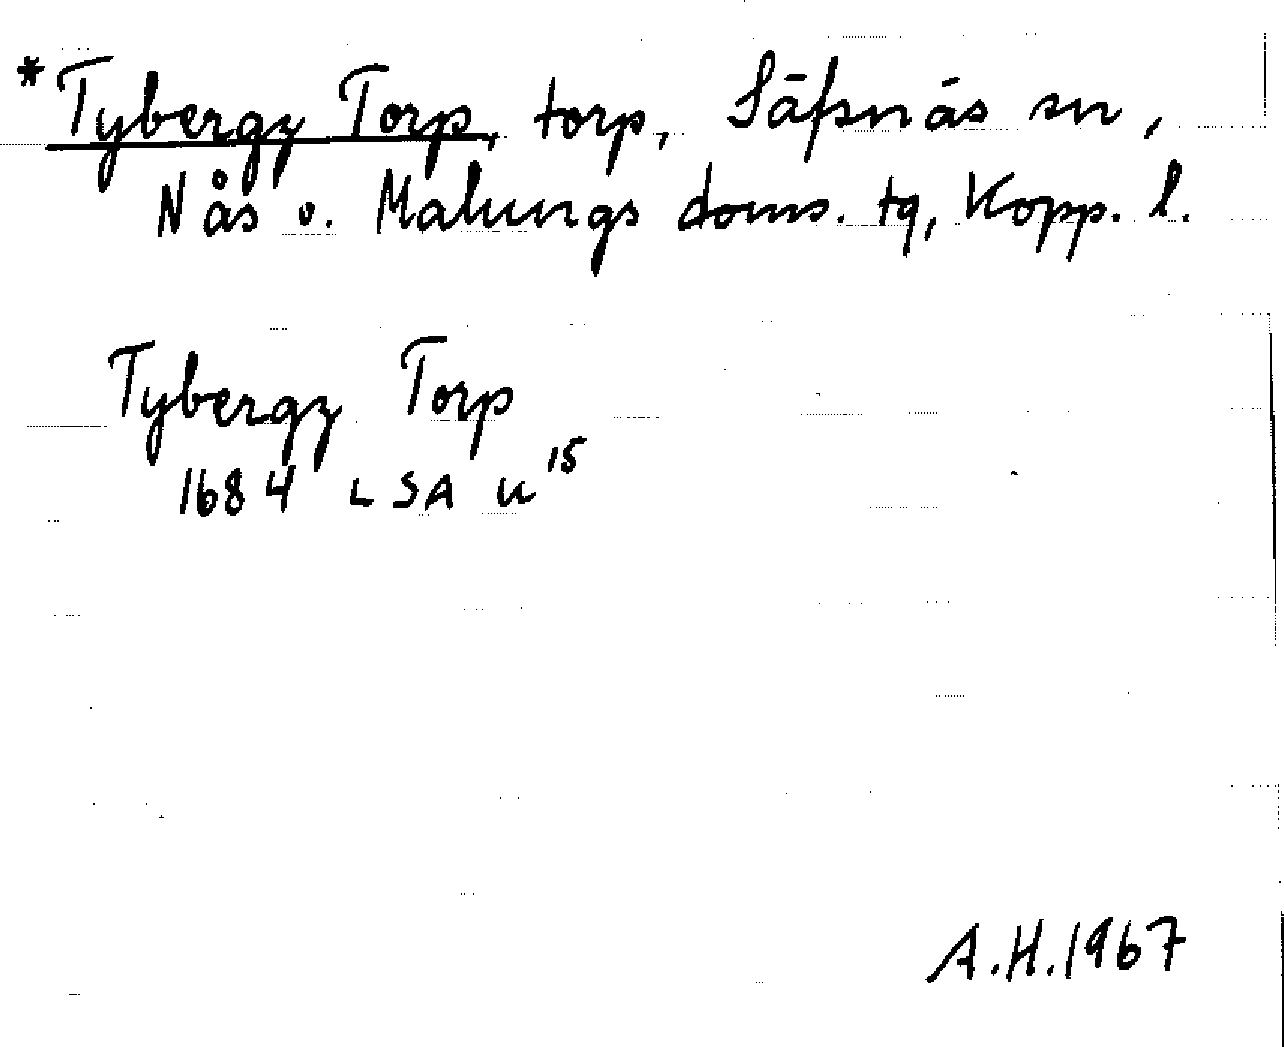 *Tybergz Torp, torp, Säfsnäs sn,
Nås o. Malungs doms. tg, Kopp. l.
Tybergz Torp
1684 LSA u15
A.H.1967